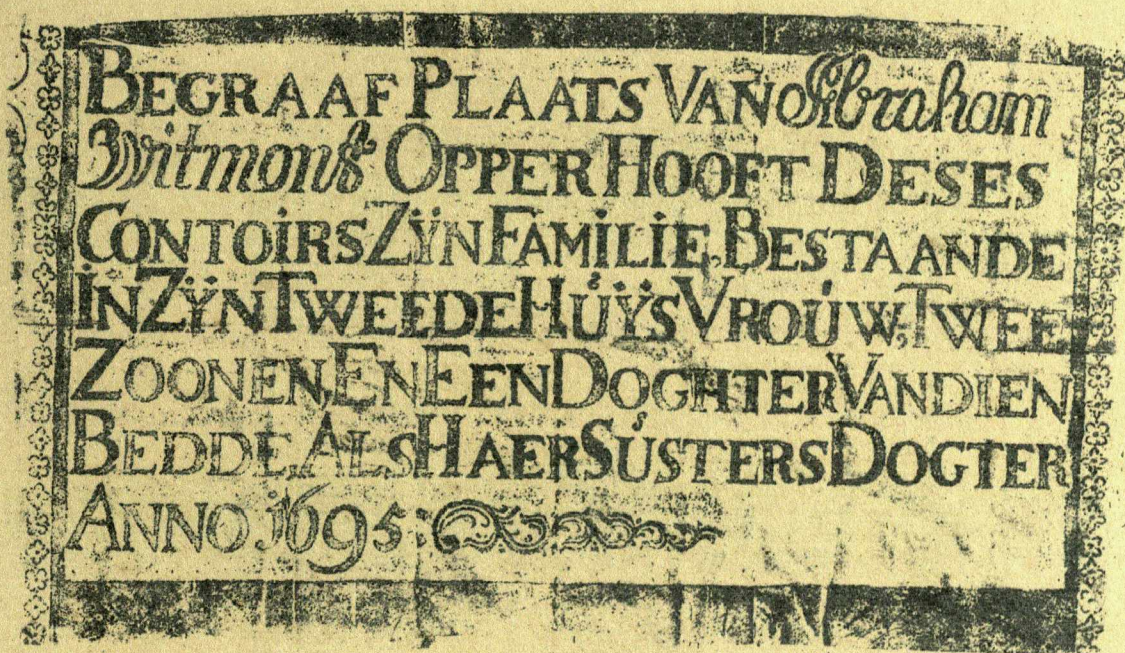 BEGRAAF PLAATS VAN Abraham
Witmont OPPER HOOFT DESES
CONTOIRS ZÿN FAMILIE, BESTAANDE
IN ZÿN TWEEDE HUÿS VROUW, TWEE
ZOONEN, EN EEN DOGHTER VAN DIEN
BEDDE, ALS HAER SUSTERS DOGTER
ANNO 1695: